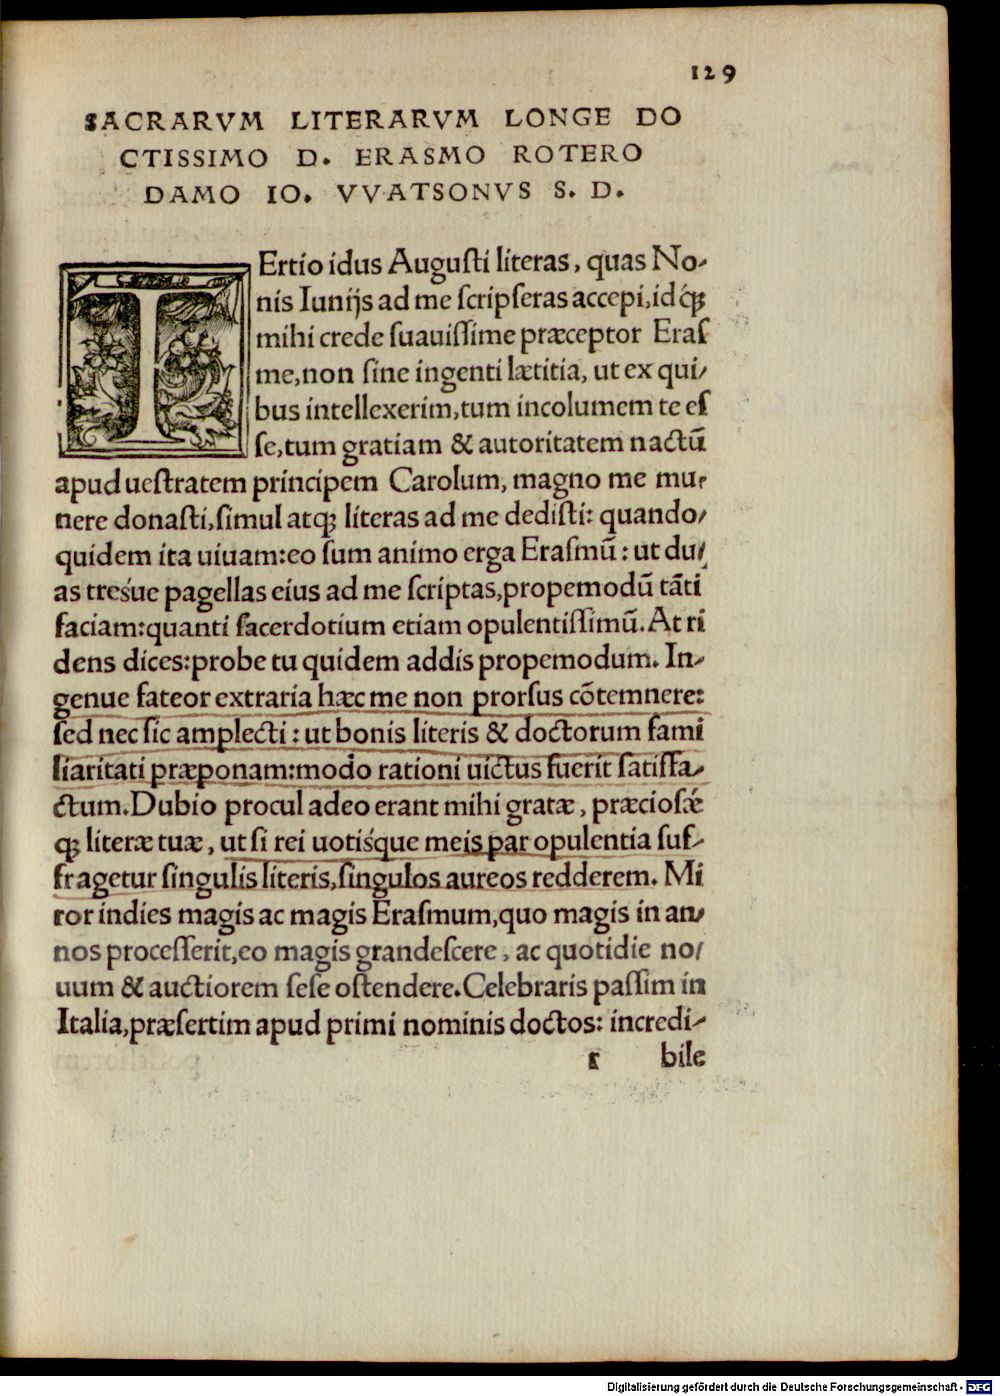 129
SACRARVM LITERARVM LONGE DO
CTISSIMO D. ERASMO ROTERO
DAMO IO. VVATSONVS S. D.
TErtio idus Augusti literas, quas No-
nis Iunijs ad me scripseras accepi, id q̃ꝫ
mihi crede suauissime præceptor Eras
me, non sine ingenti lætitia, ut ex qui/
bus intellexerim, tum incolumem te es
se, tum gratiam & autoritatem nactũ
apud uestratem principem Carolum, magno me mu-
nere donasti, simul atqꝫ literas ad me dedisti: quando/
quidem ita uiuam: eo sum animo erga Erasmũ: ut du/
as tresúe pagellas eius ad me scriptas, propemodũ tãti
faciam: quanti sacerdotium etiam opulentissimũ. At ri
dens dices: probe tu quidem addis propemodum. In-
genue fateor extraria hæc me non prorsus cõtemnere:
sed nec sic amplecti: ut bonis literis & doctorum fami
liaritati præponam: modo rationi uictus fuerit satisfa-
ctum. Dubio procul adeo erant mihi gratæ, præciosæ
qꝫ literæ tuæ, ut si rei uotisq́ue meis par opulentia suf-
fragetur singulis literis, singulos aureos redderem. Mi
ror indies magis ac magis Erasmum, quo magis in an/
nos processerit, eo magis grandescere, ac quotidie no/
uum & auctiorem sese ostendere. Celebraris passim in
Italia, præsertim apud primi nominis doctos: incredi-
r bile
Digitalisierung gefördert durch die Deutsche Forschungsgemeinschaft - DFG